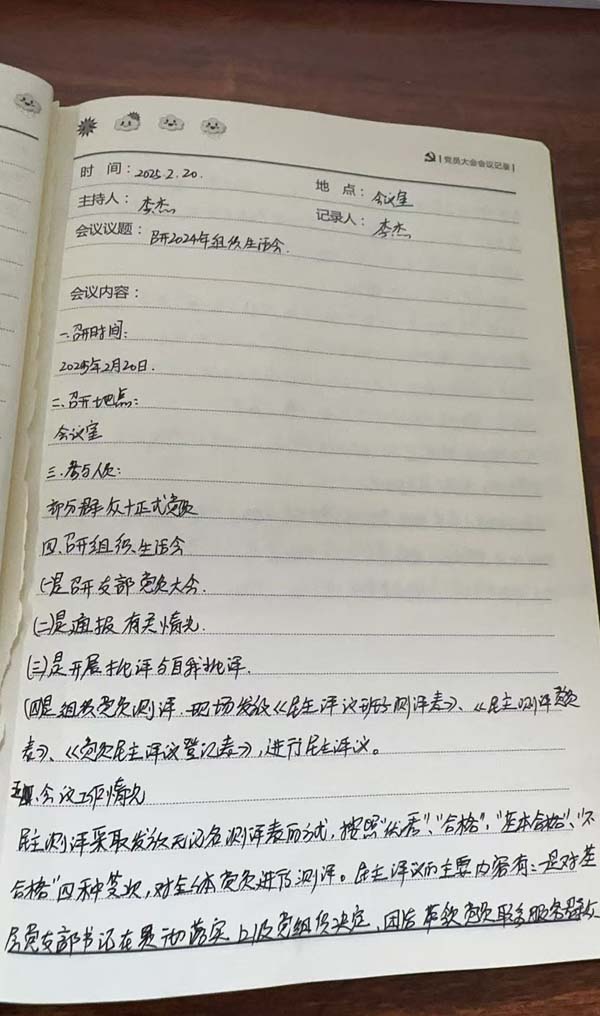 党员大会会议记录
时 间：2025.2.20.
地 点：会议室
主持人：李杰
记录人：李杰
会议议题：召开2024年组织生活会.
会议内容：
一.召开时间：
2025年2月20日.
二.召开地点：
会议室
三.参与人员：
部分群众+正式党员
四.召开组织生活会
(一)是召开支部党员大会.
(二)是通报有关情况.
(三)是开展批评与自我批评.
(四)是组织党员测评.现场发放《民主评议班子测评表》、《民主测评党员
表》、《党员民主评议登记表》,进行民主评议。
五.会议工作情况
民主测评采取发放无记名测评表的方式,按照"优秀"、"合格"、"基本合格"、"不
合格"四种等次,对全体党员进行测评。民主评议的主要内容有:一是对基
层党支部书记在贯彻落实上级党组织决定、团结带领党员联系服务群众